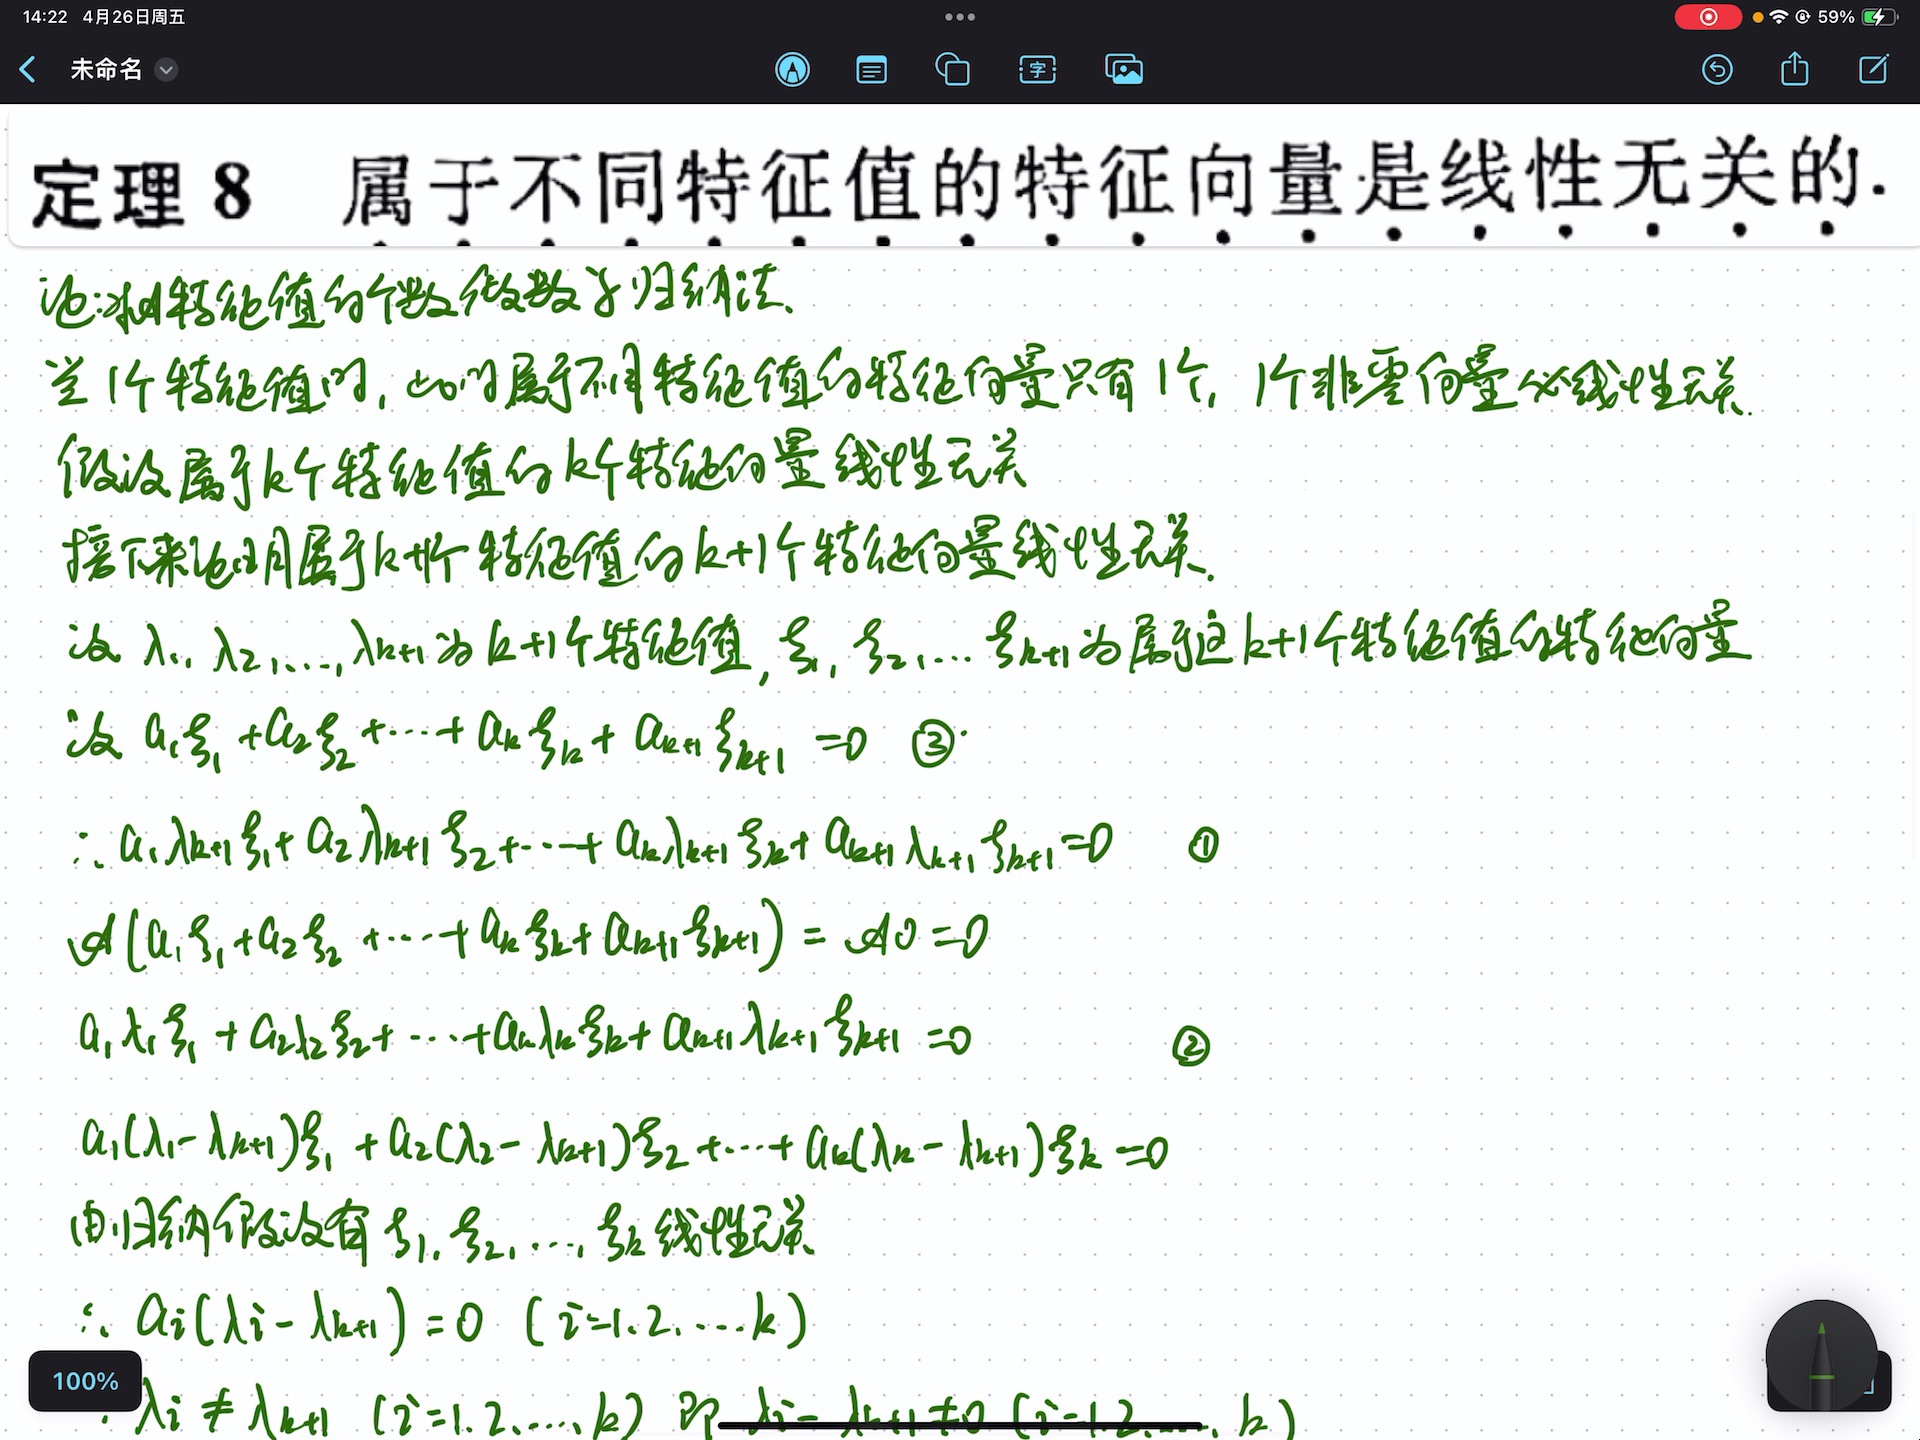 14:22 4月26日周五
59%
未命名
字
定理 8 属于不同特征值的特征向量是线性无关的.
证:对特征值的个数做数学归纳法.
当1个特征值时,此时属于不同特征值的特征向量只有1个,1个非零向量必线性无关.
假设属于k个特征值的k个特征向量线性无关
接下来证明属于k+1个特征值的k+1个特征向量线性无关.
设 λ₁, λ₂, ..., λk+1 为k+1个特征值, ξ₁, ξ₂, ... ξk+1 为属于这k+1个特征值的特征向量
设 a₁ξ₁+a₂ξ₂+···+akξk+ak+1ξk+1=0 ③
∴ a₁λk+1ξ₁+a₂λk+1ξ₂+···+akλk+1ξk+ak+1λk+1ξk+1=0 ①
𝒜(a₁ξ₁+a₂ξ₂+···+akξk+ak+1ξk+1)=𝒜0=0
a₁λ₁ξ₁+a₂λ₂ξ₂+···+akλkξk+ak+1λk+1ξk+1=0 ②
a₁(λ₁-λk+1)ξ₁+a₂(λ₂-λk+1)ξ₂+···+ak(λk-λk+1)ξk=0
由归纳假设有 ξ₁, ξ₂, ..., ξk 线性无关
∴ ai(λi-λk+1)=0 (i=1.2. ... k)
100%
λi≠λk+1 (i=1.2. ..., k) 即 λi-λk+1≠0 (i=1.2. ..., k)